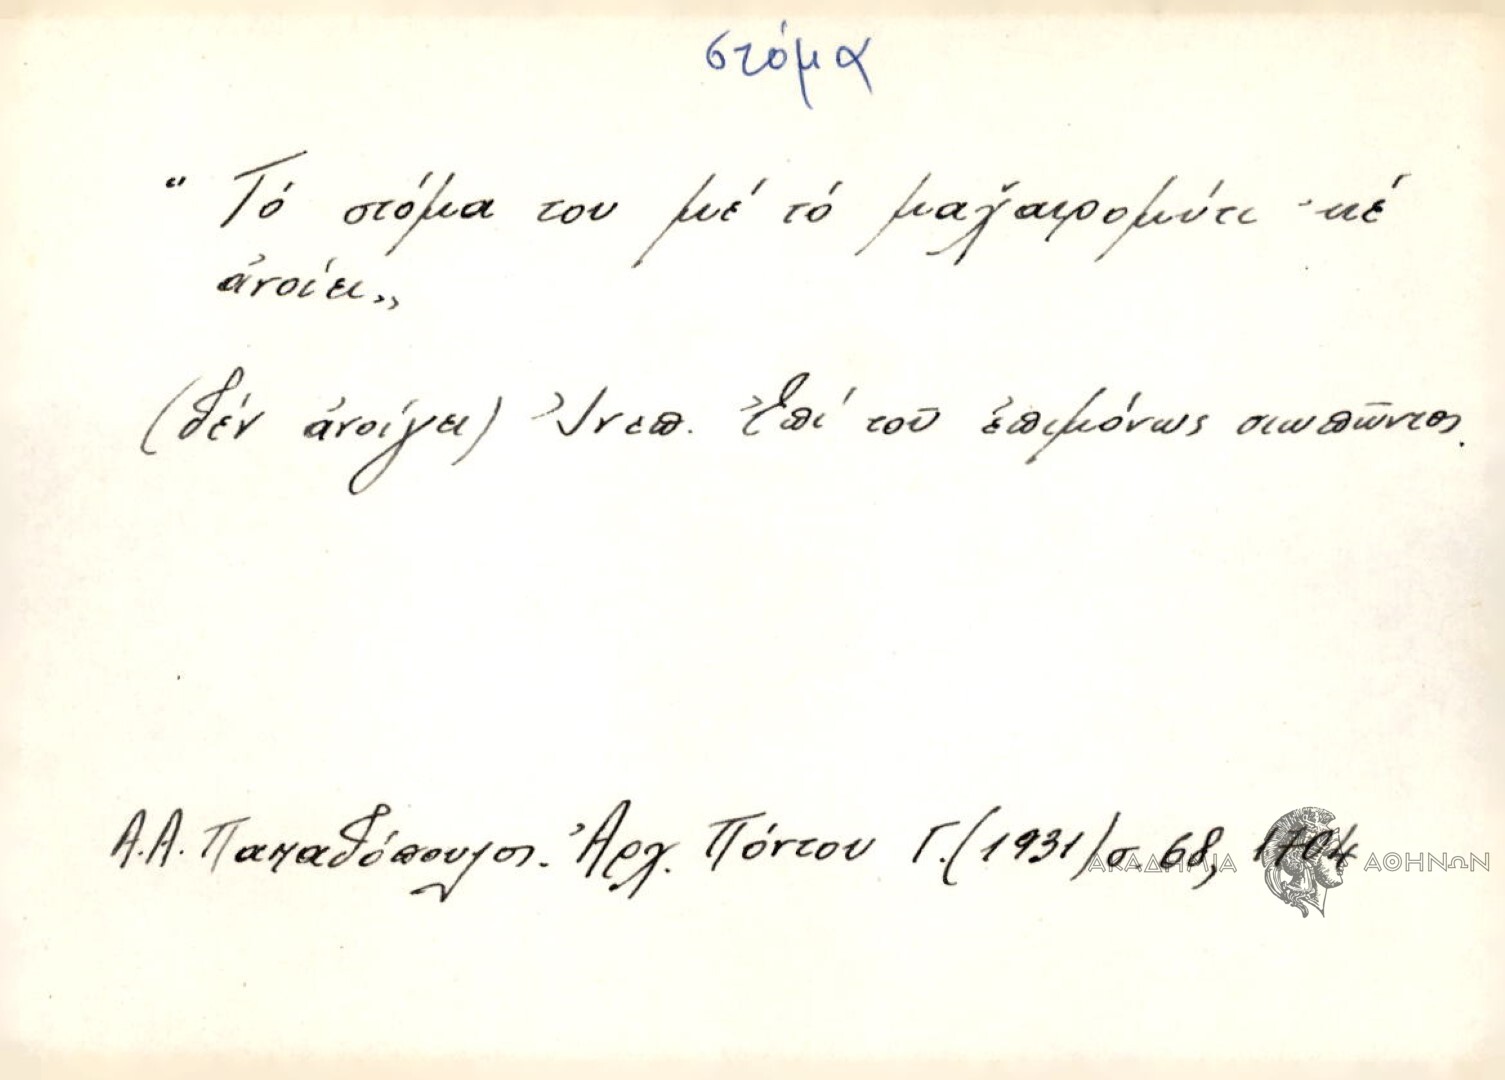 στόμα
“ Τό στόμα του μέ τό μαχ̌αιρομύτι 'κέ
ἀνοίει„
(δέν ἀνοίγει) Ἰνεπ. Ἐπί τοῦ ἐπιμόνως σιωπῶντος.
Α.Α. Παπαδόπουλος. Ἀρχ. Πόντου Γ. (1931) σ. 68, 1704
ΑΚΑΔΗΜΙΑ ΑΘΗΝΩΝ